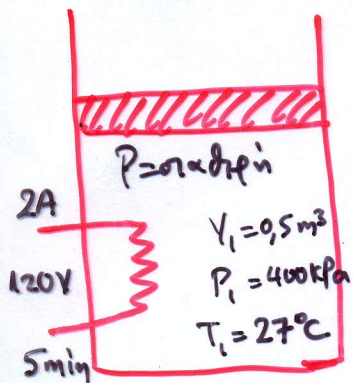 P=σταθερή
2A
120V
5min
V₁=0,5m³
P₁=400kPa
T₁=27°C